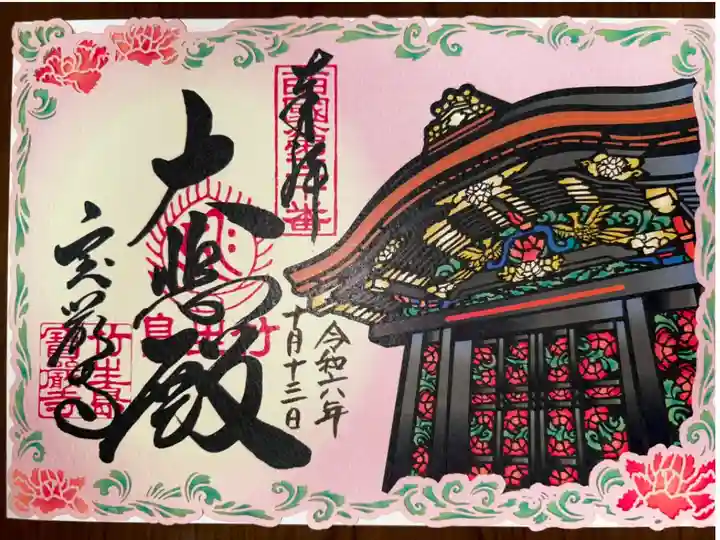 奉拝
西國第三十番
令和六年
十月十三日
大悲殿
宝厳寺
竹生島
寶嚴寺